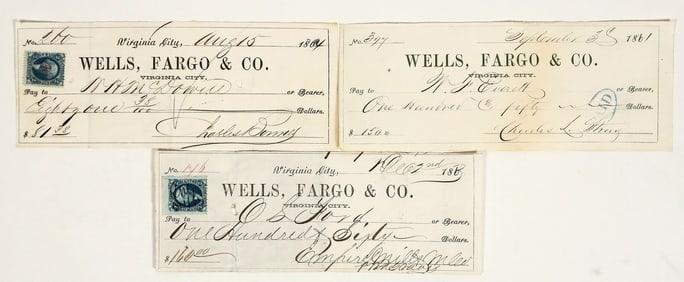 No. 260 Virginia City, Aug 15 1864
WELLS, FARGO & CO.
VIRGINIA CITY.
Pay to or Bearer,
Eighty one 38/100 Dollars.
$81 38
No. 397 September 3d 1861
WELLS, FARGO & CO.
VIRGINIA CITY.
Pay to W. F. Everett or Bearer,
One Hundred & fifty Dollars.
$ 150 00
Charles L. Strong
No. 176 Virginia City, Dec 2nd 186
WELLS, FARGO & CO.
VIRGINIA CITY.
Pay to Ford or Bearer,
One Hundred & Sixty Dollars.
$160 00 Empire Mill & M Co